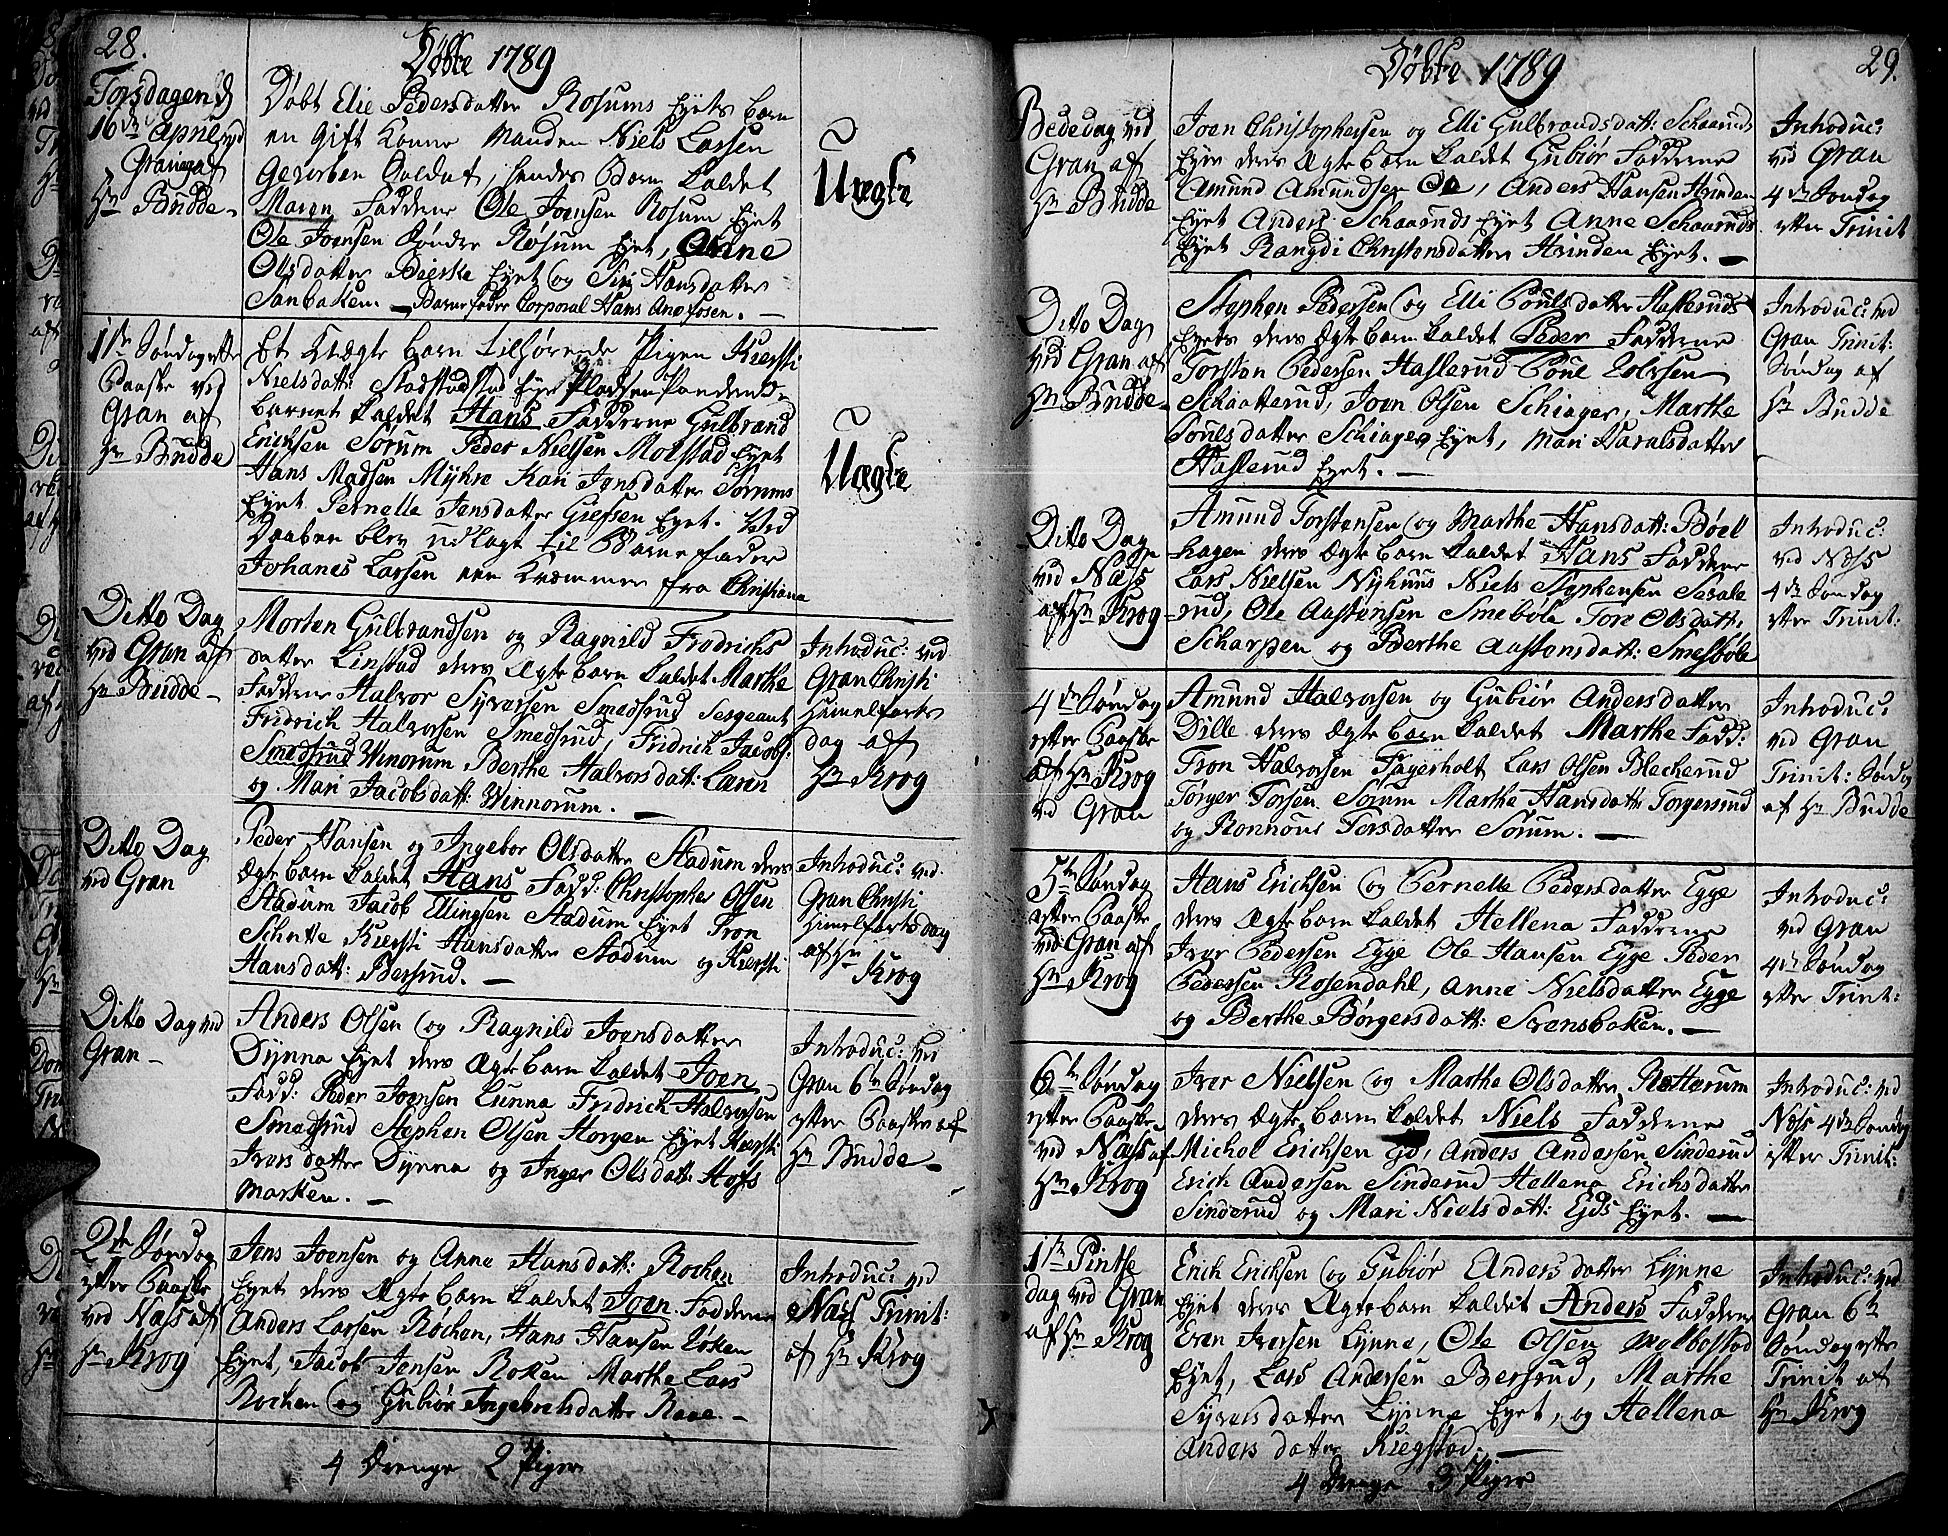 28.
Döbte 1789
Torsdagen d
16de Aprilis ved
Gran af
Hr Budde
Döbt Elie Pedersdatter Rosums Eyets barn
en gift Konne Manden Niels Larsen
Geworben Soldat, hendes Barn kaldet
Maren Faddere Ole Joensen Rosum Eyet
Ole Joensen Söndre Rosum Eyet, Anne
Olsdatter Bierke Eyet og Siri Hansdatter
Sanbaken. Barnefader Corporal Hans
Uægte
1ste Söndag efter
Paaske ved
Gran af
Hr Budde
Et Uægte barn tilhörende Pigen Kiersti
Nielsdatt: Eye Pladsen
barnet kaldet Hans Fadderne Gulbrand
Erichsen Sorum Peder Nielsen Molstad Eyet
Hans Madsen Myhre Kari Jensdatter Sorums
Eyet Pernelle Jensdatter Giefsen Eyet. Ved
Daaben blev udlagt til Barnefader
Johanes Larsen en fra Christiana
Uægte
Ditto Dag
ved Gran af
Hr Budde
Morten Gulbrandsen og Ragnild Fredrichs
datter Linstad deres Ægte barn kaldet Marthe
Fadderne Halvor Syversen Smedsrud Sergeant
Fridrich Halvorsen Smedsrud, Fridrich Jacobs:
Smedsrud Winorum Berthe Halvorsdatt:
og Mari Jacobsdatt: Winnorum.
Introduc: ved
Gran Christi
Himelfarts
dag af
Hr Krog
Ditto Dag
ved Gran
Peder Hansen og Ingebor Olsdatter Stadum deres
Ægte barn kaldet Hans Fadd: Christopher Olsen
Stadum Jacob Ellingsen Stadum Eyet Tron
Schutte Kiersti Hansdatter Stadum og Kiersti
Hansdatt: Bersrud.
Introduc: ved
Gran Christi
Himelfartsdag
af Hr
Krog
Ditto Dag ved
Gran
Anders Olsen og Ragnild Joensdatter
Dynna Eyet deres Ægte barn kaldet Joen
Fadd: Peder Joensen Lunna Fridrich Halvorsen
Smedsrud Stephen Olsen Horgen Eyet Kiersti
Iversdatter Dynna og Inger Olsdatt: Hofs
marken.
Introduc: ved
Gran 6te Söndag
efter Paaske af
Hr Budde
2den Söndag
efter Paaske
ved Næss af
Hr Krog
Jens Joensen og Anne Hansdatt: Rochen
Eyet deres Ægte barn kaldet Joen Fadderne
Anders Larsen Rochen, Hans Hansen Röken
Eyet, Jacob Jensen Roken Marthe Lars
Rochen og Gubiör Ingebretsdatter
Introduc: ved
Næss Trinit:
af Hr Krog
4 Drenge 2 Piger
29.
Döbte 1789
Bededag ved
Gran af
Hr Budde
Joen Christophersen og Elli Gulbrandsdatt: Schaaruds
Eyes deres Ægte barn kaldet Gubiör Fadderne
Amund Amundsen Anders Hansen Hvinden
Eyet Anders Schaaruds Eyet Anne Schaaruds
Eyet Rangdi Christensdatter Hvinden Eyet.
Introduc:
ved Gran
4de Söndag
efter Trinit
Ditto Dag
ved Gran af
Hr Budde
Stephen Pedersen og Elli Poulsdatter Haslerud
Eyets deres Ægte barn kaldet Peder Fadderne
Torsten Pedersen Haslerud Poul
Schaatterud, Joen Olsen Schiager, Marthe
Poulsdatter Schiager Eyet, Mari Haralsdatter
Haslerud Eyet.
Introduc: ved
Gran Trinit:
Söndag af
Hr Budde
Ditto Dag
ved Næss
af Hr Krog
Amund Torstensen og Marthe Hansdatt: Böell
hagen deres Ægte barn kaldet Hans Fadderne
Lars Nielsen Nyhuus Niels Stephensen
rud, Ole Aastensen Smeböle Tore Olsdatt:
Scharpen og Berthe Aastensdatt: Smesböle
Introduc:
ved Næss
4de Söndag
efter Trinit:
4de Söndag
efter Paaske
af Hr Krog
ved Gran
Amund Halvorsen og Gubiör Andersdatter
Dille deres Ægte barn kaldet Marthe Fadd:
Tron Halvorsen Fagerholt Lars Olsen Blecherud
Törger Torsen Sorum Marthe Hansdatt: Torgersrud
og Ronnoue Torsdatter Sorum.
Introduc:
ved Gran
Trinit: Söndag
af Hr Budde
5te Söndag
efter Paaske
ved Gran af
Hr Krog
Hans Erichsen og Pernelle Pedersdatter Egge
deres Ægte barn kaldet Hellena Fadderne
Iver Pedersen Egge Ole Hansen Egge Peder
Pedersen Rosendahl, Anne Nielsdatter Egge
og Berthe Börgersdatt: Svensbaken.
Introduc:
ved Gran
4de Söndag
efter Trinit:
6te Söndag
efter Paaske
ved Næss af
Hr Krog
Iver Nielsen og Marthe Olsdatter Rotterum
deres Ægte barn kaldet Niels Fadderne
Michel Erichsen Eid, Anders Andersen Sinderud
Erich Andersen Sinderud Hellena Erichsdatter
Sinderud og Mari Nielsdatt: Eids Eyet.
Introduc: ved
Næss 4de Söndag
efter Trinit:
1ste Pintse
dag ved Gran
af Hr Krog
Erich Erichsen og Gubiör Andersdatter Lynne
Eyet deres Ægte barn kaldet Anders Fadderne
Even Iversen Lynne, Ole Olsen Molbestad
Eyet, Lars Andersen Bersrud, Marthe
Syversdatter Lynne Eyet, og Hellena
Andersdatter Kiegstad.
Introduc: ved
Gran 6te
Söndag efter
Trinit af
Hr Krog
4 Drenge 3 Piger